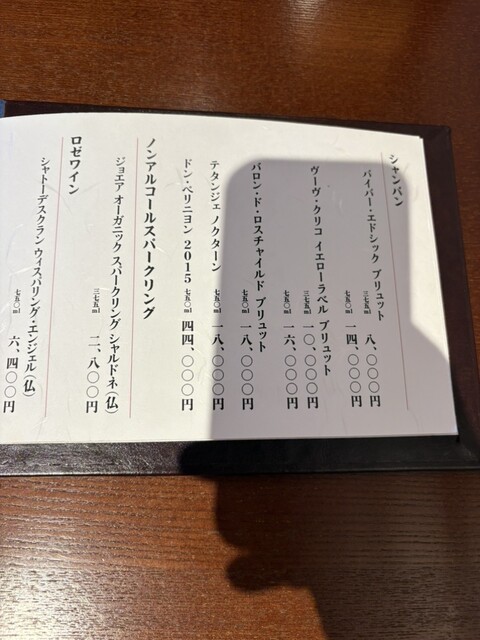 シャンパン
パイパー・エドシック ブリュット
三七五ml 八、〇〇〇円
七五〇ml 一四、〇〇〇円
ヴーヴ・クリコ イエローラベル ブリュット
三七五ml 一〇、〇〇〇円
七五〇ml 一六、〇〇〇円
バロン・ド・ロスチャイルド ブリュット
七五〇ml 一八、〇〇〇円
テタンジェ ノクターン 七五〇ml 一八、〇〇〇円
ドン・ペリニヨン 2015 七五〇ml 四四、〇〇〇円
ノンアルコールスパークリング
ジョエア オーガニック スパークリング シャルドネ(仏)
三七五ml 二、八〇〇円
ロゼワイン
シャトーデスクラン ウィスパリング・エンジェル(仏)
七五〇ml 六、四〇〇円